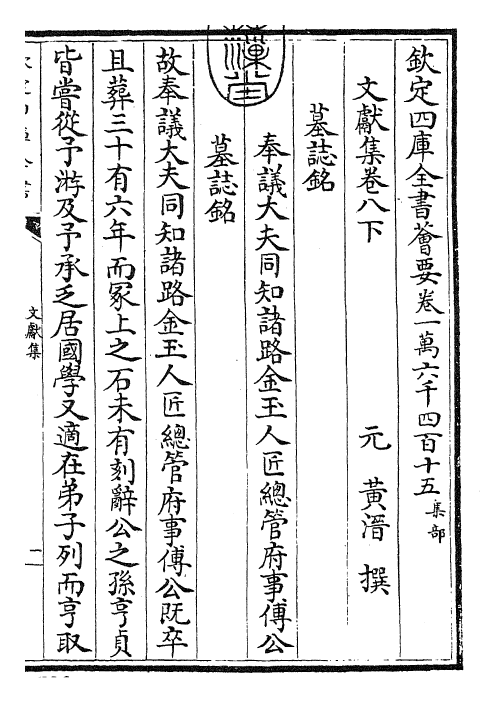 欽定四庫全書薈要卷一萬六千四百十五 集部
文獻集卷八下
元 黃溍 撰
墓誌銘
奉議大夫同知諸路金玉人匠總管府事傅公
墓誌銘
故奉議大夫同知諸路金玉人匠總管府事傅公既卒
且葬三十有六年而冢上之石未有刻辭公之孫亨貞
皆嘗從予游及予承乏居國學又適在弟子列而亨取
文獻集
二